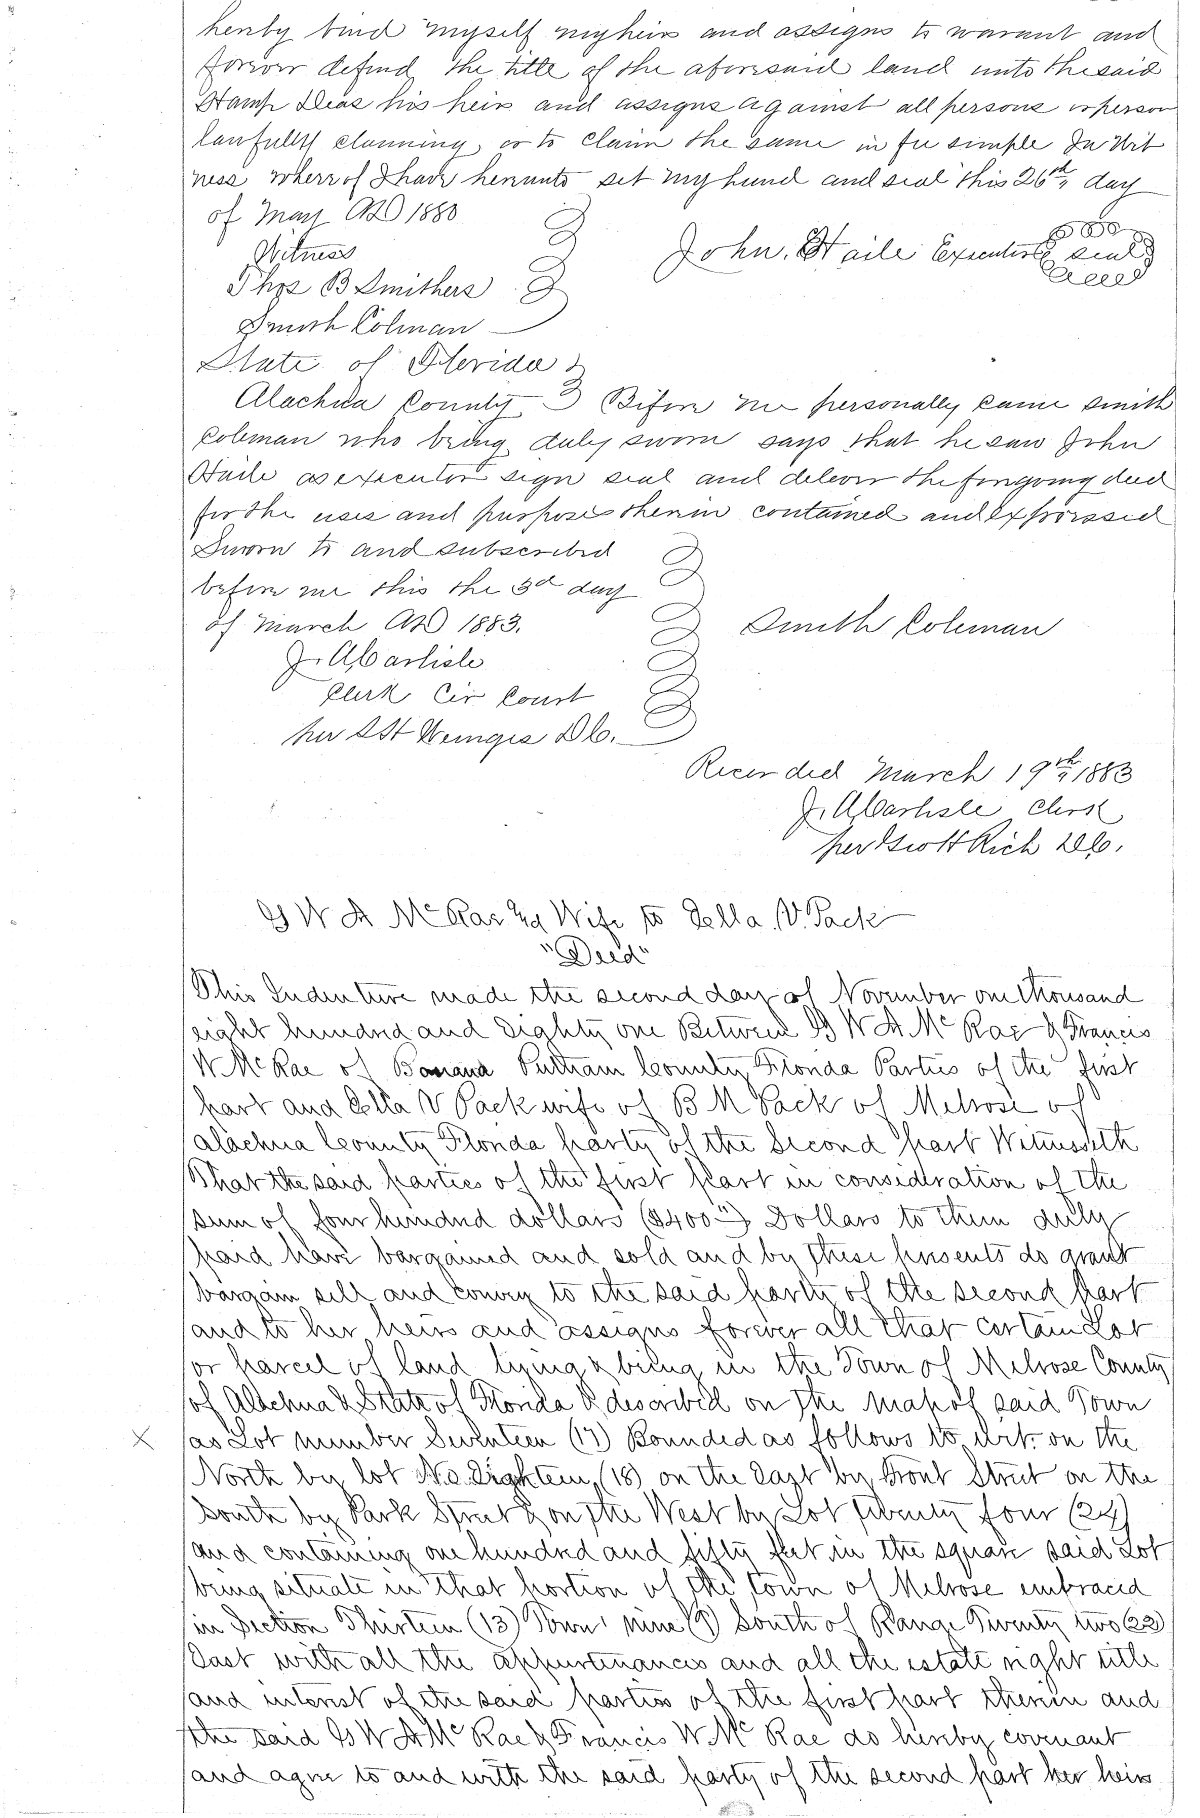 hereby bind myself my heirs and assigns to warant and
forever defend the title of the aforesaid land unto the said
Stamp Deas his heirs and assigns against all persons or person
lawfully claiming or to claim the same in fee simple In Wit
ness wherrof I have hereunto set my hand and seal this 26th day
of May AD 1880
Witness
John. Haile Executor seal
Thos B Smithers
Smith Colman
State of Florida
Alachua County Before me personally came Smith
Coleman who being duly sworn says that he saw John
Haile as executor sign seal and deliver the forgoing deed
for the uses and purposes therein contained and expressed
Sworn to and subscribed
before me this the 3d day
of March AD 1883.
Smith Coleman
J. A. Carlisle
Clerk Cir Court
per S H Wienges D.C.
Recorded March 19th 1883
J. A. Carlisle Clerk
per Scott Rich D.C.
G W A McRae and Wife to Della V. Pack
"Deed"
This Indenture made the second day of November one thousand
eight hundred and Eighty one Between G W A McRae & Francis
W McRae of Banana Putnam County Florida Parties of the first
part and Ella V Pack wife of B M Pack of Melrose of
Alachua County Florida party of the Second part Witnesseth
That the said parties of the first part in consideration of the
sum of four hundred dollars ($400") Dollars to them duly
paid have bargained and sold and by these presents do grant
bargain sell and convey to the said party of the second part
and to her heirs and assigns forever all that certain Lot
or parcel of land lying & being in the Town of Melrose County
of Alachua & State of Florida & described on the map of said Town
X as Lot number Seventeen (17) Bounded as follows to wit: on the
North by lot No. Eighteen (18) on the East by Front Street on the
South by Park Street & on the West by Lot twenty four (24)
and containing one hundred and fifty feet in the square said Lot
being situate in that portion of the town of Melrose embraced
in Section Thirteen (13) Town' nine (9) South of Range Twenty two (22)
East with all the appurtenances and all the estate right title
and interest of the said parties of the first part therein and
the said G W A McRae & Francis W. McRae do hereby covenant
and agree to and with the said party of the second part her heirs